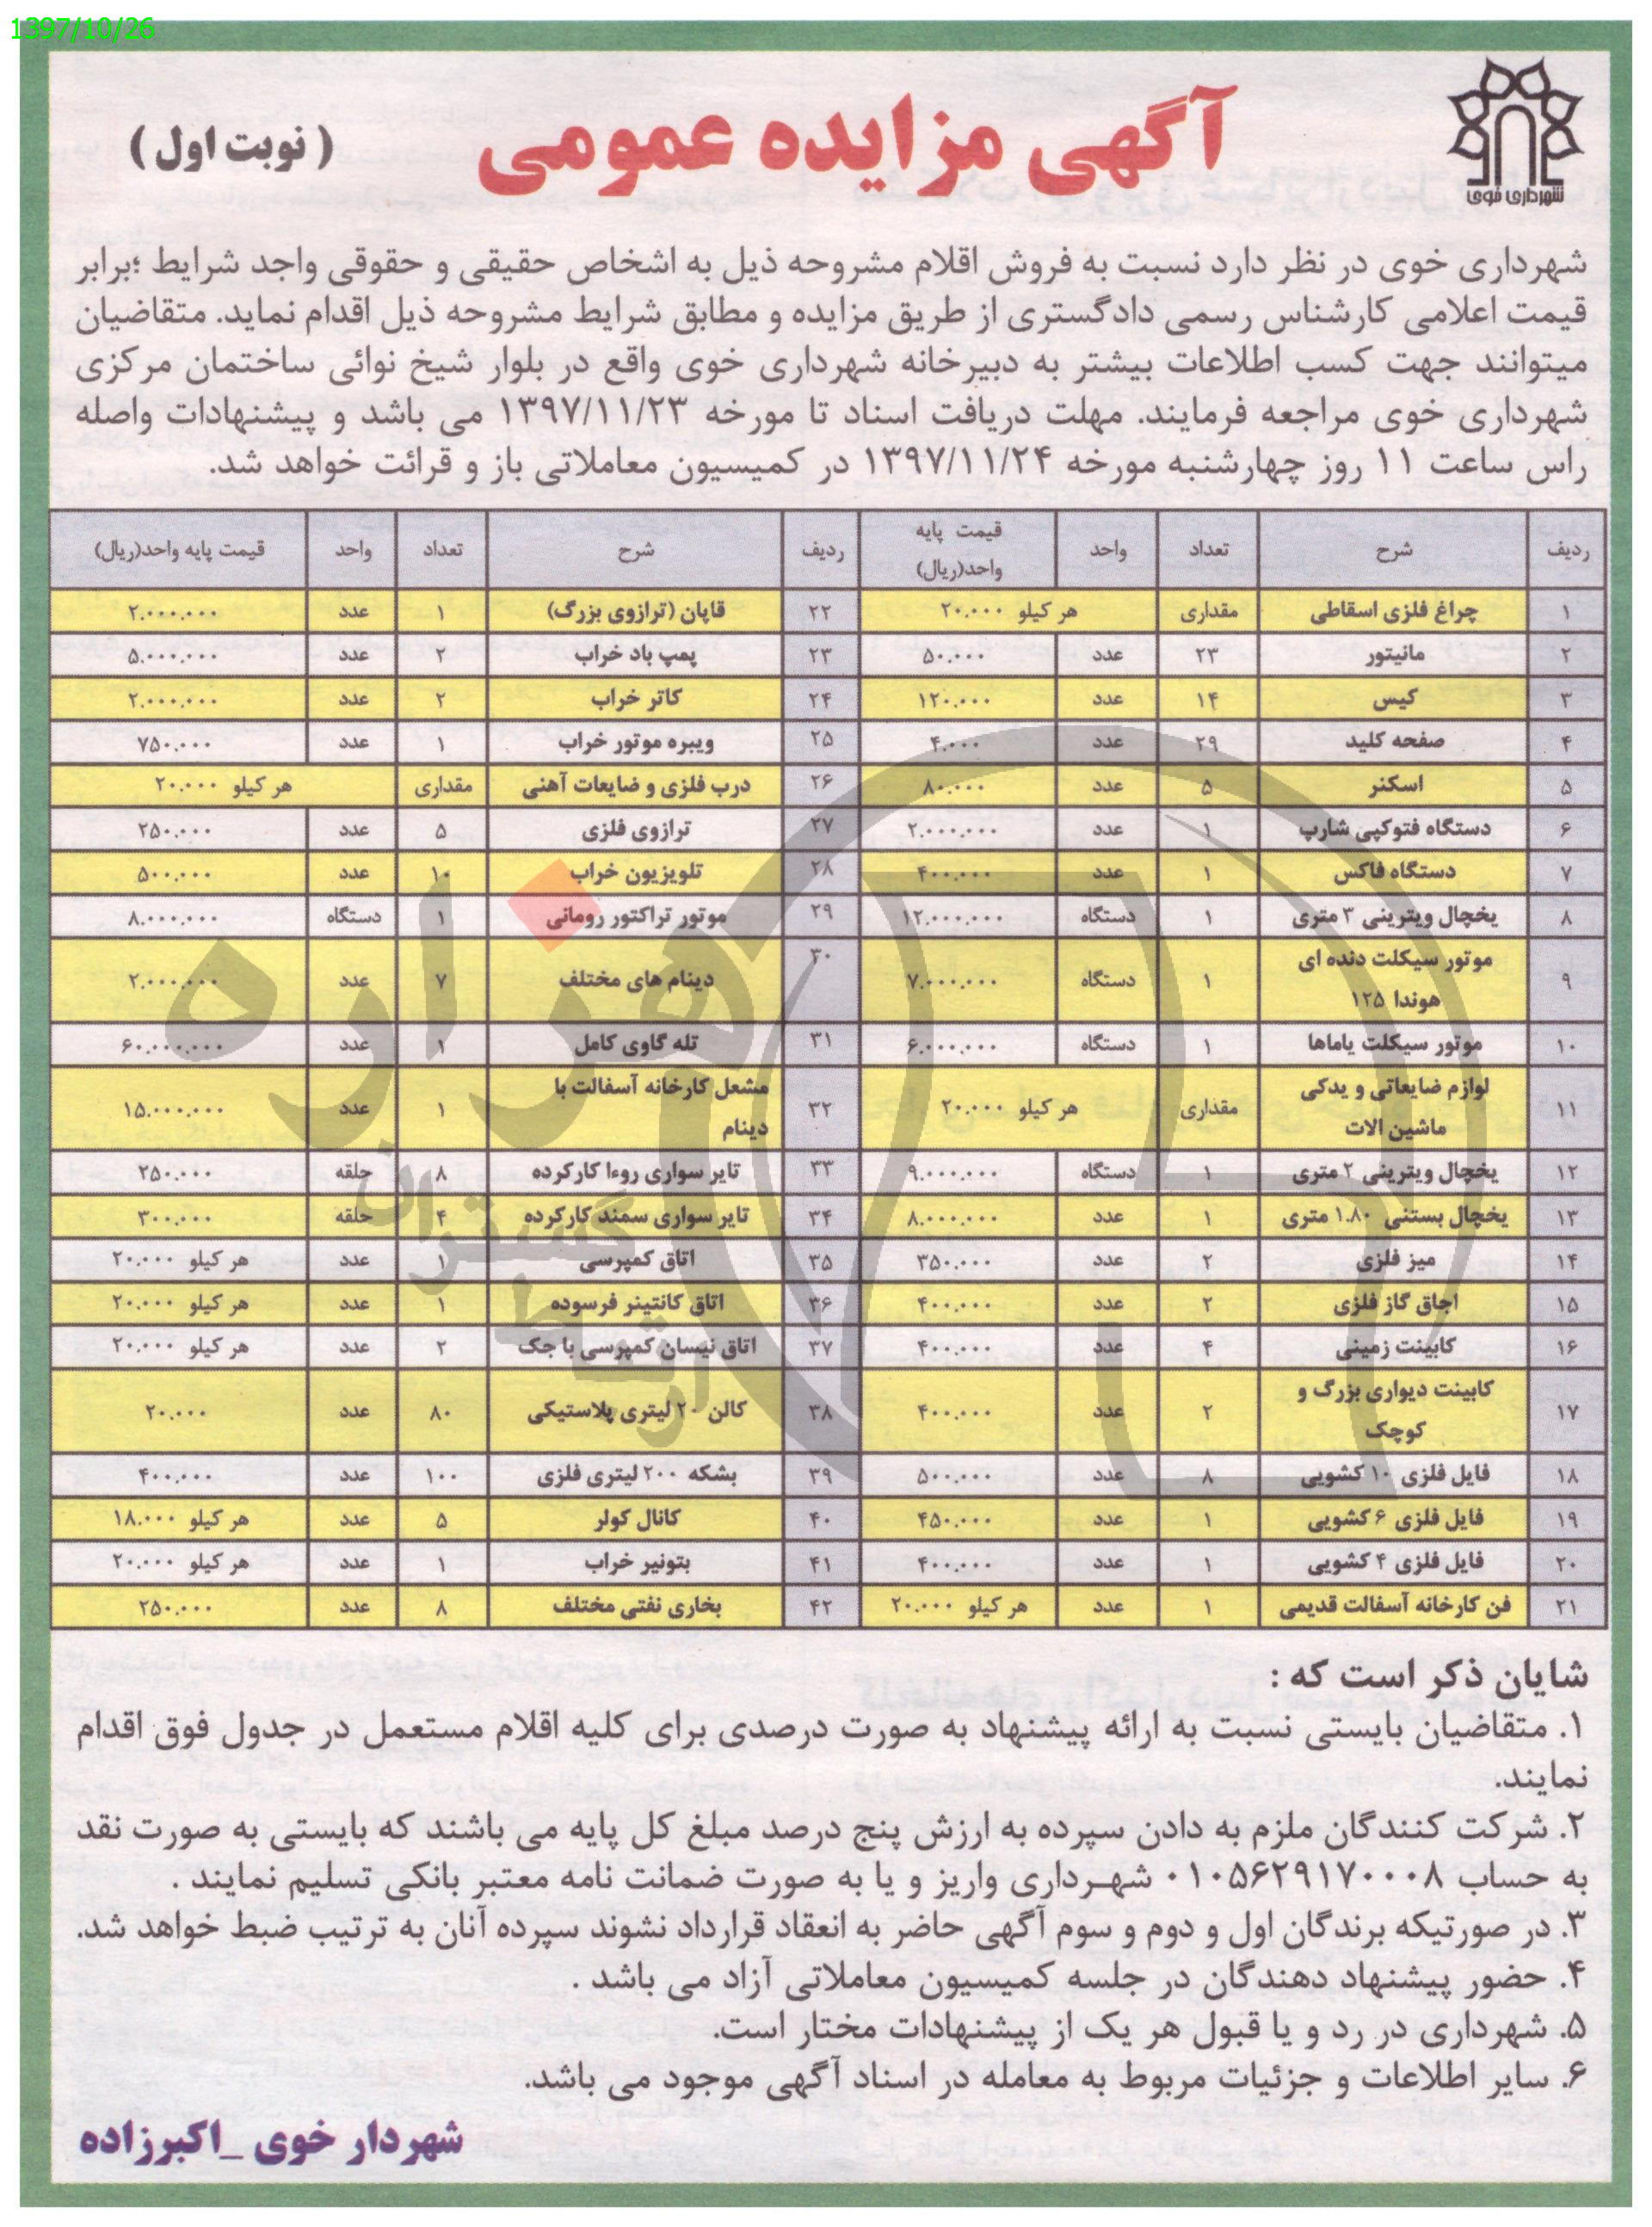 1397/10/26
شهرداری خوی
آگهی مزایده عمومی
( نوبت اول )
شهرداری خوی در نظر دارد نسبت به فروش اقلام مشروحه ذیل به اشخاص حقیقی و حقوقی واجد شرایط ؛برابر
قیمت اعلامی کارشناس رسمی دادگستری از طریق مزایده و مطابق شرایط مشروحه ذیل اقدام نماید. متقاضیان
میتوانند جهت کسب اطلاعات بیشتر به دبیرخانه شهرداری خوی واقع در بلوار شیخ نوائی ساختمان مرکزی
شهرداری خوی مراجعه فرمایند. مهلت دریافت اسناد تا مورخه ۱۳۹۷/۱۱/۲۳ می باشد و پیشنهادات واصله
راس ساعت ۱۱ روز چهارشنبه مورخه ۱۳۹۷/۱۱/۲۴ در کمیسیون معاملاتی باز و قرائت خواهد شد.
ردیف شرح تعداد واحد قیمت پایه واحد(ریال) ردیف شرح تعداد واحد قیمت پایه واحد(ریال)
۱ چراغ فلزی اسقاطی مقداری هر کیلو ۲۰.۰۰۰ ۲۲ قاپان (ترازوی بزرگ) ۱ عدد ۲.۰۰۰.۰۰۰
۲ مانیتور ۲۳ عدد ۵۰.۰۰۰ ۲۳ پمپ باد خراب ۲ عدد ۵.۰۰۰.۰۰۰
۳ کیس ۱۴ عدد ۱۲۰.۰۰۰ ۲۴ کاتر خراب ۲ عدد ۲.۰۰۰.۰۰۰
۴ صفحه کلید ۲۹ عدد ۴.۰۰۰ ۲۵ ویبره موتور خراب ۱ عدد ۷۵۰.۰۰۰
۵ اسکنر ۵ عدد ۸۰.۰۰۰ ۲۶ درب فلزی و ضایعات آهنی مقداری هر کیلو ۲۰.۰۰۰
۶ دستگاه فتوکپی شارپ ۱ عدد ۲.۰۰۰.۰۰۰ ۲۷ ترازوی فلزی ۵ عدد ۲۵۰.۰۰۰
۷ دستگاه فاکس ۱ عدد ۴۰۰.۰۰۰ ۲۸ تلویزیون خراب ۱۰ عدد ۵۰۰.۰۰۰
۸ یخچال ویترینی ۳ متری ۱ دستگاه ۱۲.۰۰۰.۰۰۰ ۲۹ موتور تراکتور رومانی ۱ دستگاه ۸.۰۰۰.۰۰۰
۹ موتور سیکلت دنده ای هوندا ۱۲۵ ۱ دستگاه ۷.۰۰۰.۰۰۰ ۳۰ دینام های مختلف ۷ عدد ۲.۰۰۰.۰۰۰
۱۰ موتور سیکلت یاماها ۱ دستگاه ۶.۰۰۰.۰۰۰ ۳۱ تله گاوی کامل ۱ عدد ۶۰.۰۰۰.۰۰۰
۱۱ لوازم ضایعاتی و یدکی ماشین الات مقداری هر کیلو ۲۰.۰۰۰ ۳۲ مشعل کارخانه آسفالت با دینام ۱ عدد ۱۵.۰۰۰.۰۰۰
۱۲ یخچال ویترینی ۲ متری ۱ دستگاه ۹.۰۰۰.۰۰۰ ۳۳ تایر سواری روءا کارکرده ۸ حلقه ۲۵۰.۰۰۰
۱۳ یخچال بستنی ۱.۸۰ متری ۱ عدد ۸.۰۰۰.۰۰۰ ۳۴ تایر سواری سمند کارکرده ۴ حلقه ۳۰۰.۰۰۰
۱۴ میز فلزی ۲ عدد ۳۵۰.۰۰۰ ۳۵ اتاق کمپرسی ۱ عدد هر کیلو ۲۰.۰۰۰
۱۵ اجاق گاز فلزی ۲ عدد ۴۰۰.۰۰۰ ۳۶ اتاق کانتینر فرسوده ۱ عدد هر کیلو ۲۰.۰۰۰
۱۶ کابینت زمینی ۴ عدد ۴۰۰.۰۰۰ ۳۷ اتاق نیسان کمپرسی با جک ۲ عدد هر کیلو ۲۰.۰۰۰
۱۷ کابینت دیواری بزرگ و کوچک ۲ عدد ۴۰۰.۰۰۰ ۳۸ کالن ۲۰ لیتری پلاستیکی ۸۰ عدد ۲۰.۰۰۰
۱۸ فایل فلزی ۱۰ کشویی ۸ عدد ۵۰۰.۰۰۰ ۳۹ بشکه ۲۰۰ لیتری فلزی ۱۰۰ عدد ۴۰۰.۰۰۰
۱۹ فایل فلزی ۶ کشویی ۱ عدد ۴۵۰.۰۰۰ ۴۰ کانال کولر ۵ عدد هر کیلو ۱۸.۰۰۰
۲۰ فایل فلزی ۴ کشویی ۱ عدد ۴۰۰.۰۰۰ ۴۱ بتونیر خراب ۱ عدد هر کیلو ۲۰.۰۰۰
۲۱ فن کارخانه آسفالت قدیمی ۱ عدد هر کیلو ۲۰.۰۰۰ ۴۲ بخاری نفتی مختلف ۸ عدد ۲۵۰.۰۰۰
هزاره
ارتباط گستران
شایان ذکر است که :
۱. متقاضیان بایستی نسبت به ارائه پیشنهاد به صورت درصدی برای کلیه اقلام مستعمل در جدول فوق اقدام
نمایند.
۲. شرکت کنندگان ملزم به دادن سپرده به ارزش پنج درصد مبلغ کل پایه می باشند که بایستی به صورت نقد
به حساب ۰۱۰۵۶۲۹۱۷۰۰۰۸ شهرداری واریز و یا به صورت ضمانت نامه معتبر بانکی تسلیم نمایند .
۳. در صورتیکه برندگان اول و دوم و سوم آگهی حاضر به انعقاد قرارداد نشوند سپرده آنان به ترتیب ضبط خواهد شد.
۴. حضور پیشنهاد دهندگان در جلسه کمیسیون معاملاتی آزاد می باشد .
۵. شهرداری در رد و یا قبول هر یک از پیشنهادات مختار است.
۶. سایر اطلاعات و جزئیات مربوط به معامله در اسناد آگهی موجود می باشد.
شهردار خوی _اکبرزاده